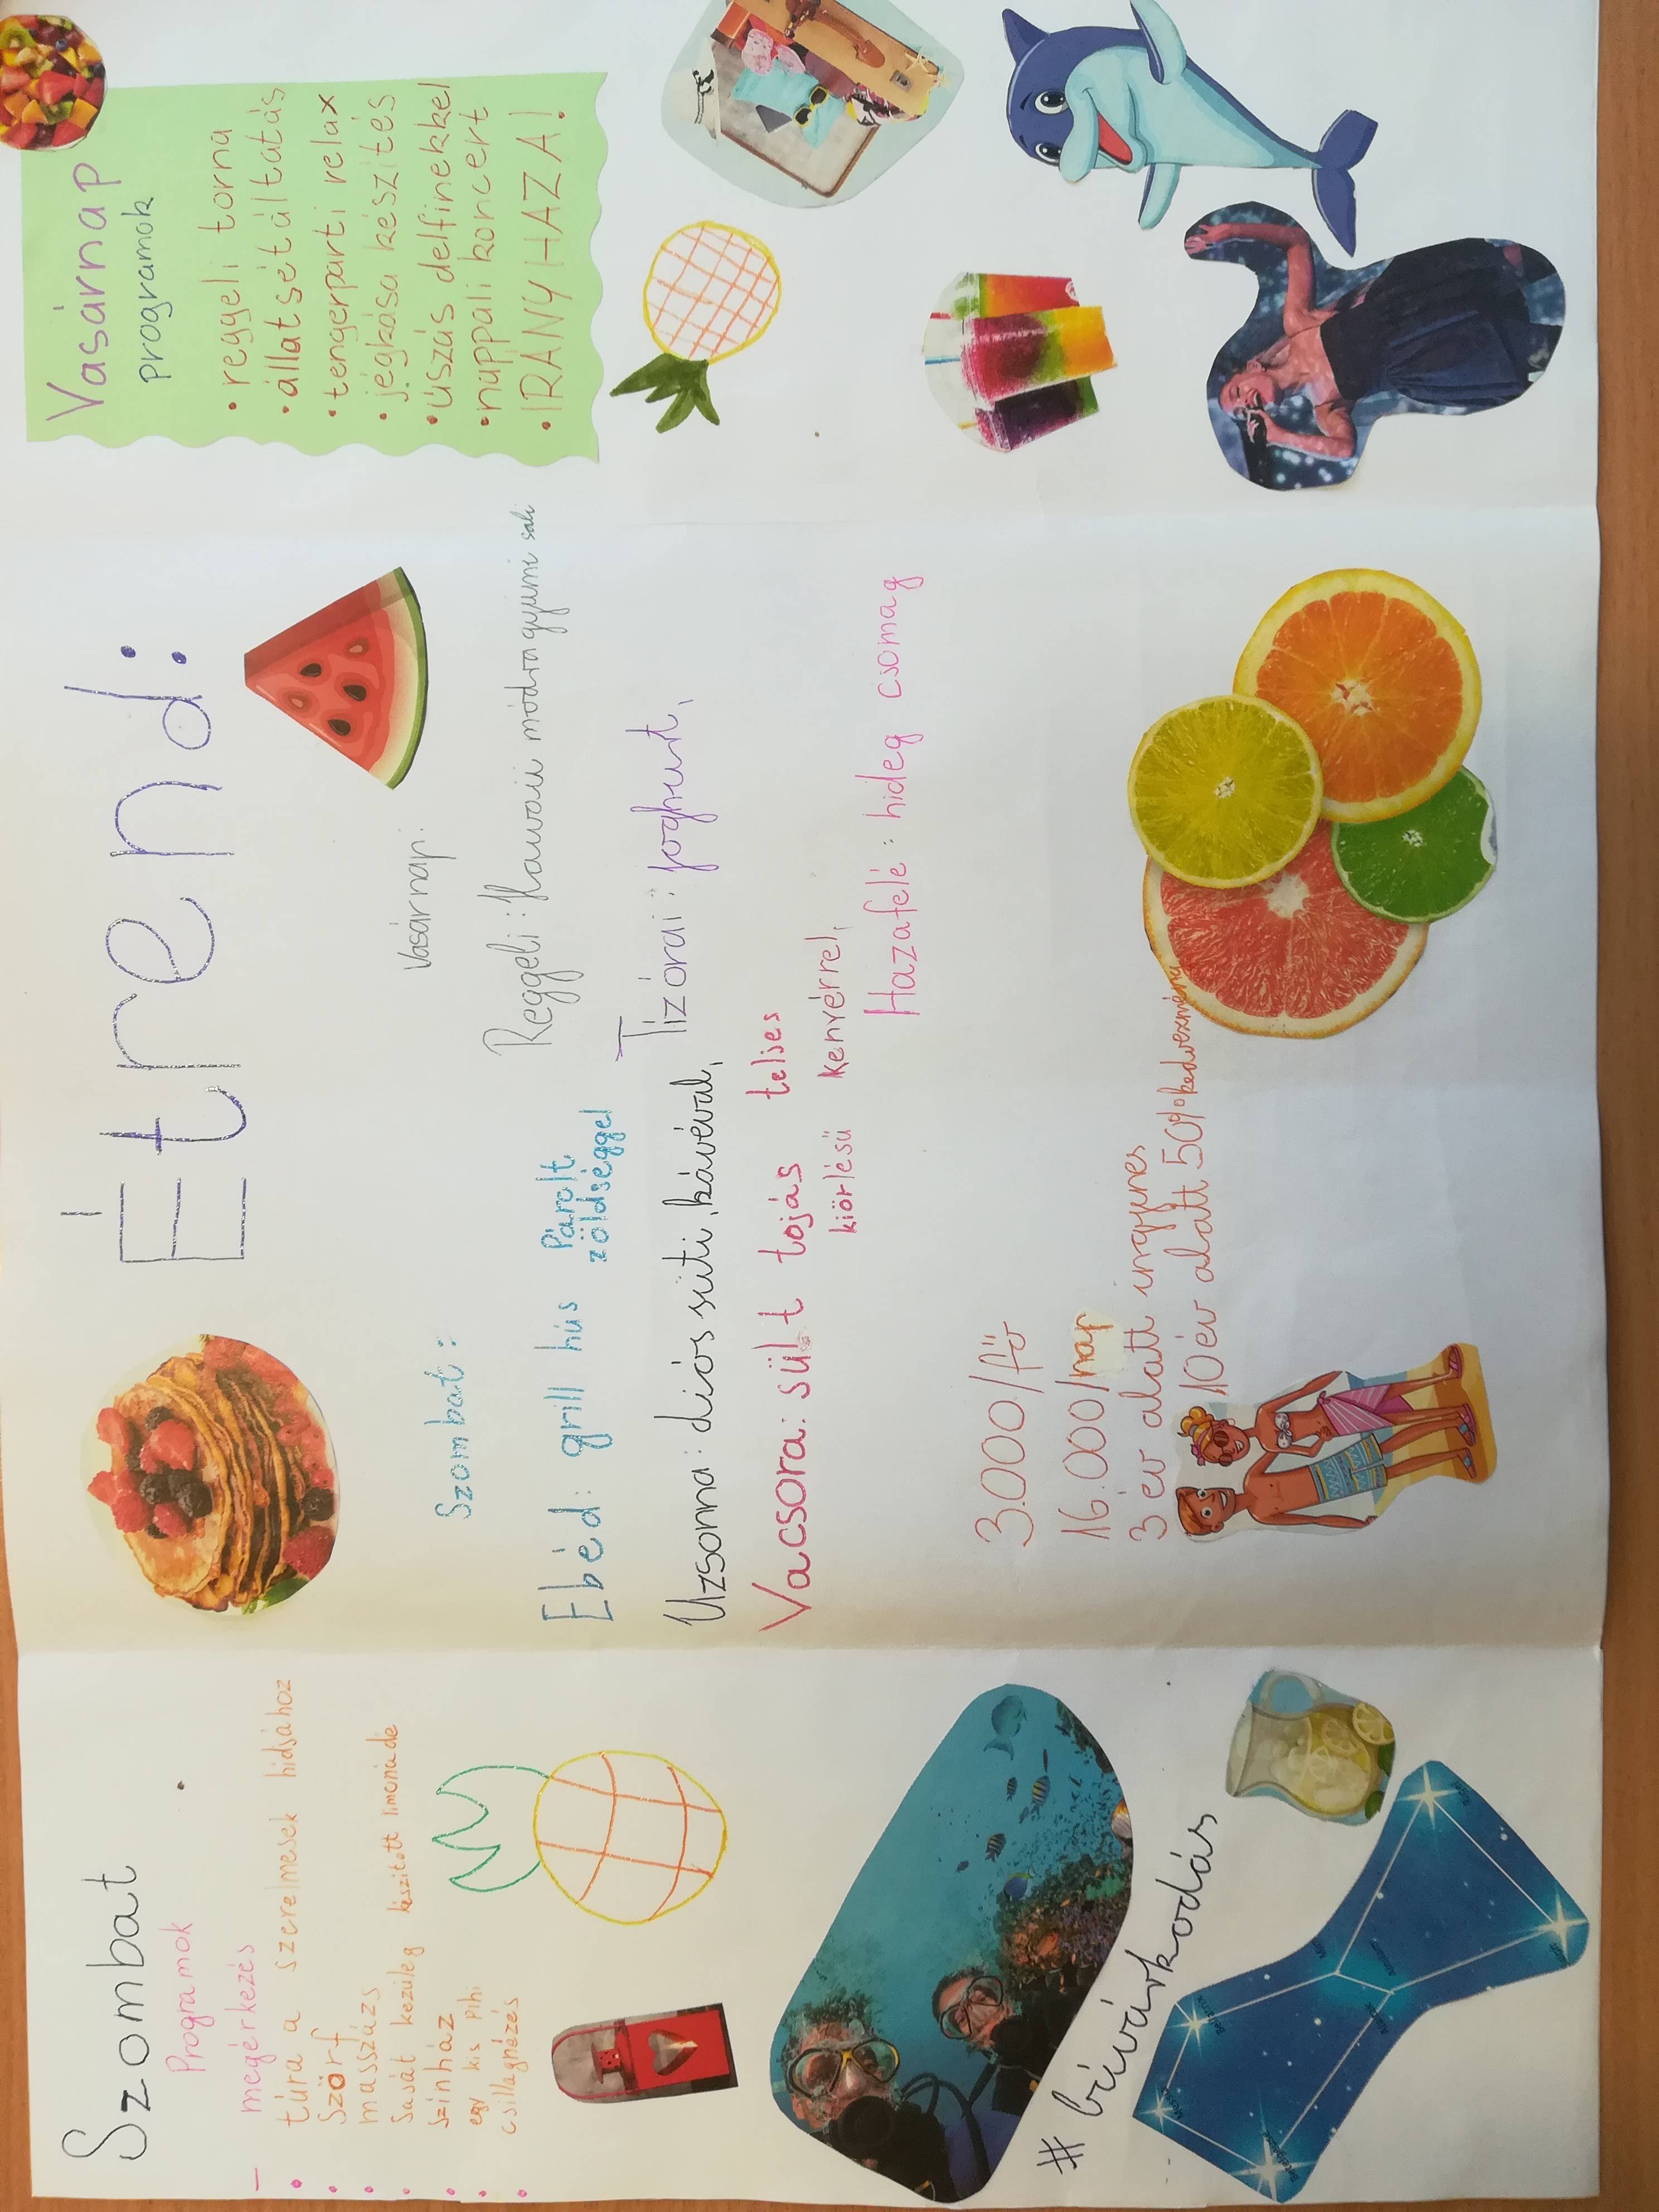 Szombat
Programok
— megérkezés
• túra a szerelmesek hídjához
• Szörf
• masszázs
• Saját kezűleg készített limonáde
• színház
• egy kis pihi
• csillagnézés
# búvárkodás
Étrend:
Szombat:
Ebéd: grill hús Párolt
zöldséggel
Uzsonna: diós süti, kávéval,
Vacsora: sült tojás teljes
kiörlésű kenyérrel,
Vasárnap:
Reggeli: Hawaii módra gyümi sali
Tízórai: joghurt,
Hazafelé: hideg csomag
3.000/fő
16.000/nap
3 év alatt ingyenes
10 év alatt 50%kedvezmény
Vasárnap
programok
• reggeli torna
• állatsétáltatás
• tengerparti relax
• jégkása készítés
• úszás delfinekkel
• nappali koncert
• IRÁNY HAZA!